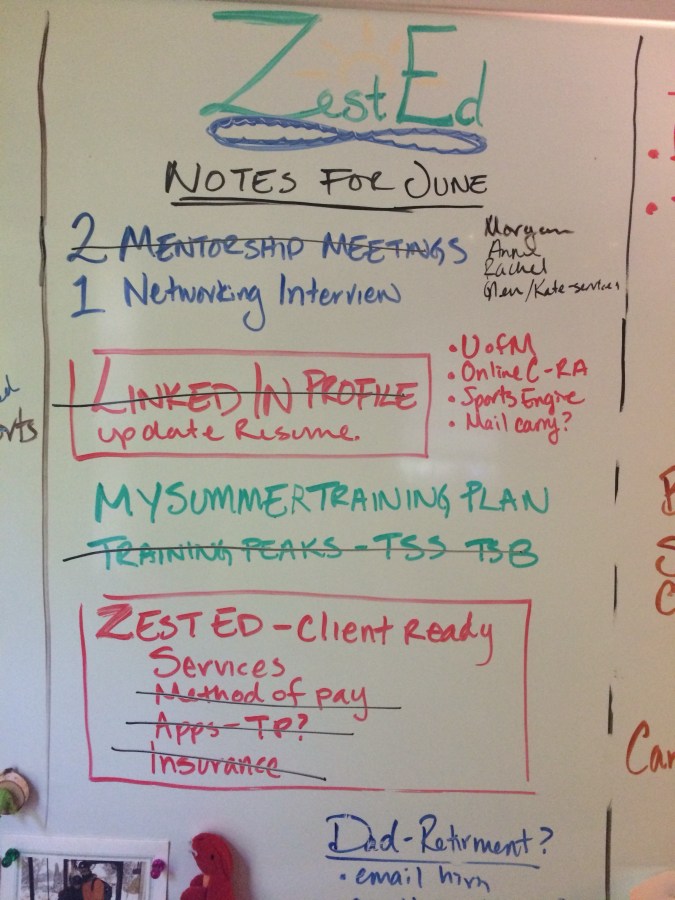 Zest Ed
NOTES FOR JUNE
2 MENTORSHIP MEETINGS
1 Networking Interview
Morgan
Anne
Rachel
Glen/Kate-services
LINKED IN PROFILE
update Resume.
• U of M
• Online C-RA
• Sports Engine
• Mail carry?
MY SUMMER TRAINING PLAN
TRAINING PEAKS - TSS TSB
ZEST ED - Client Ready
Services
Method of pay
Apps - TP?
Insurance
Dad-Retirment?
• email him